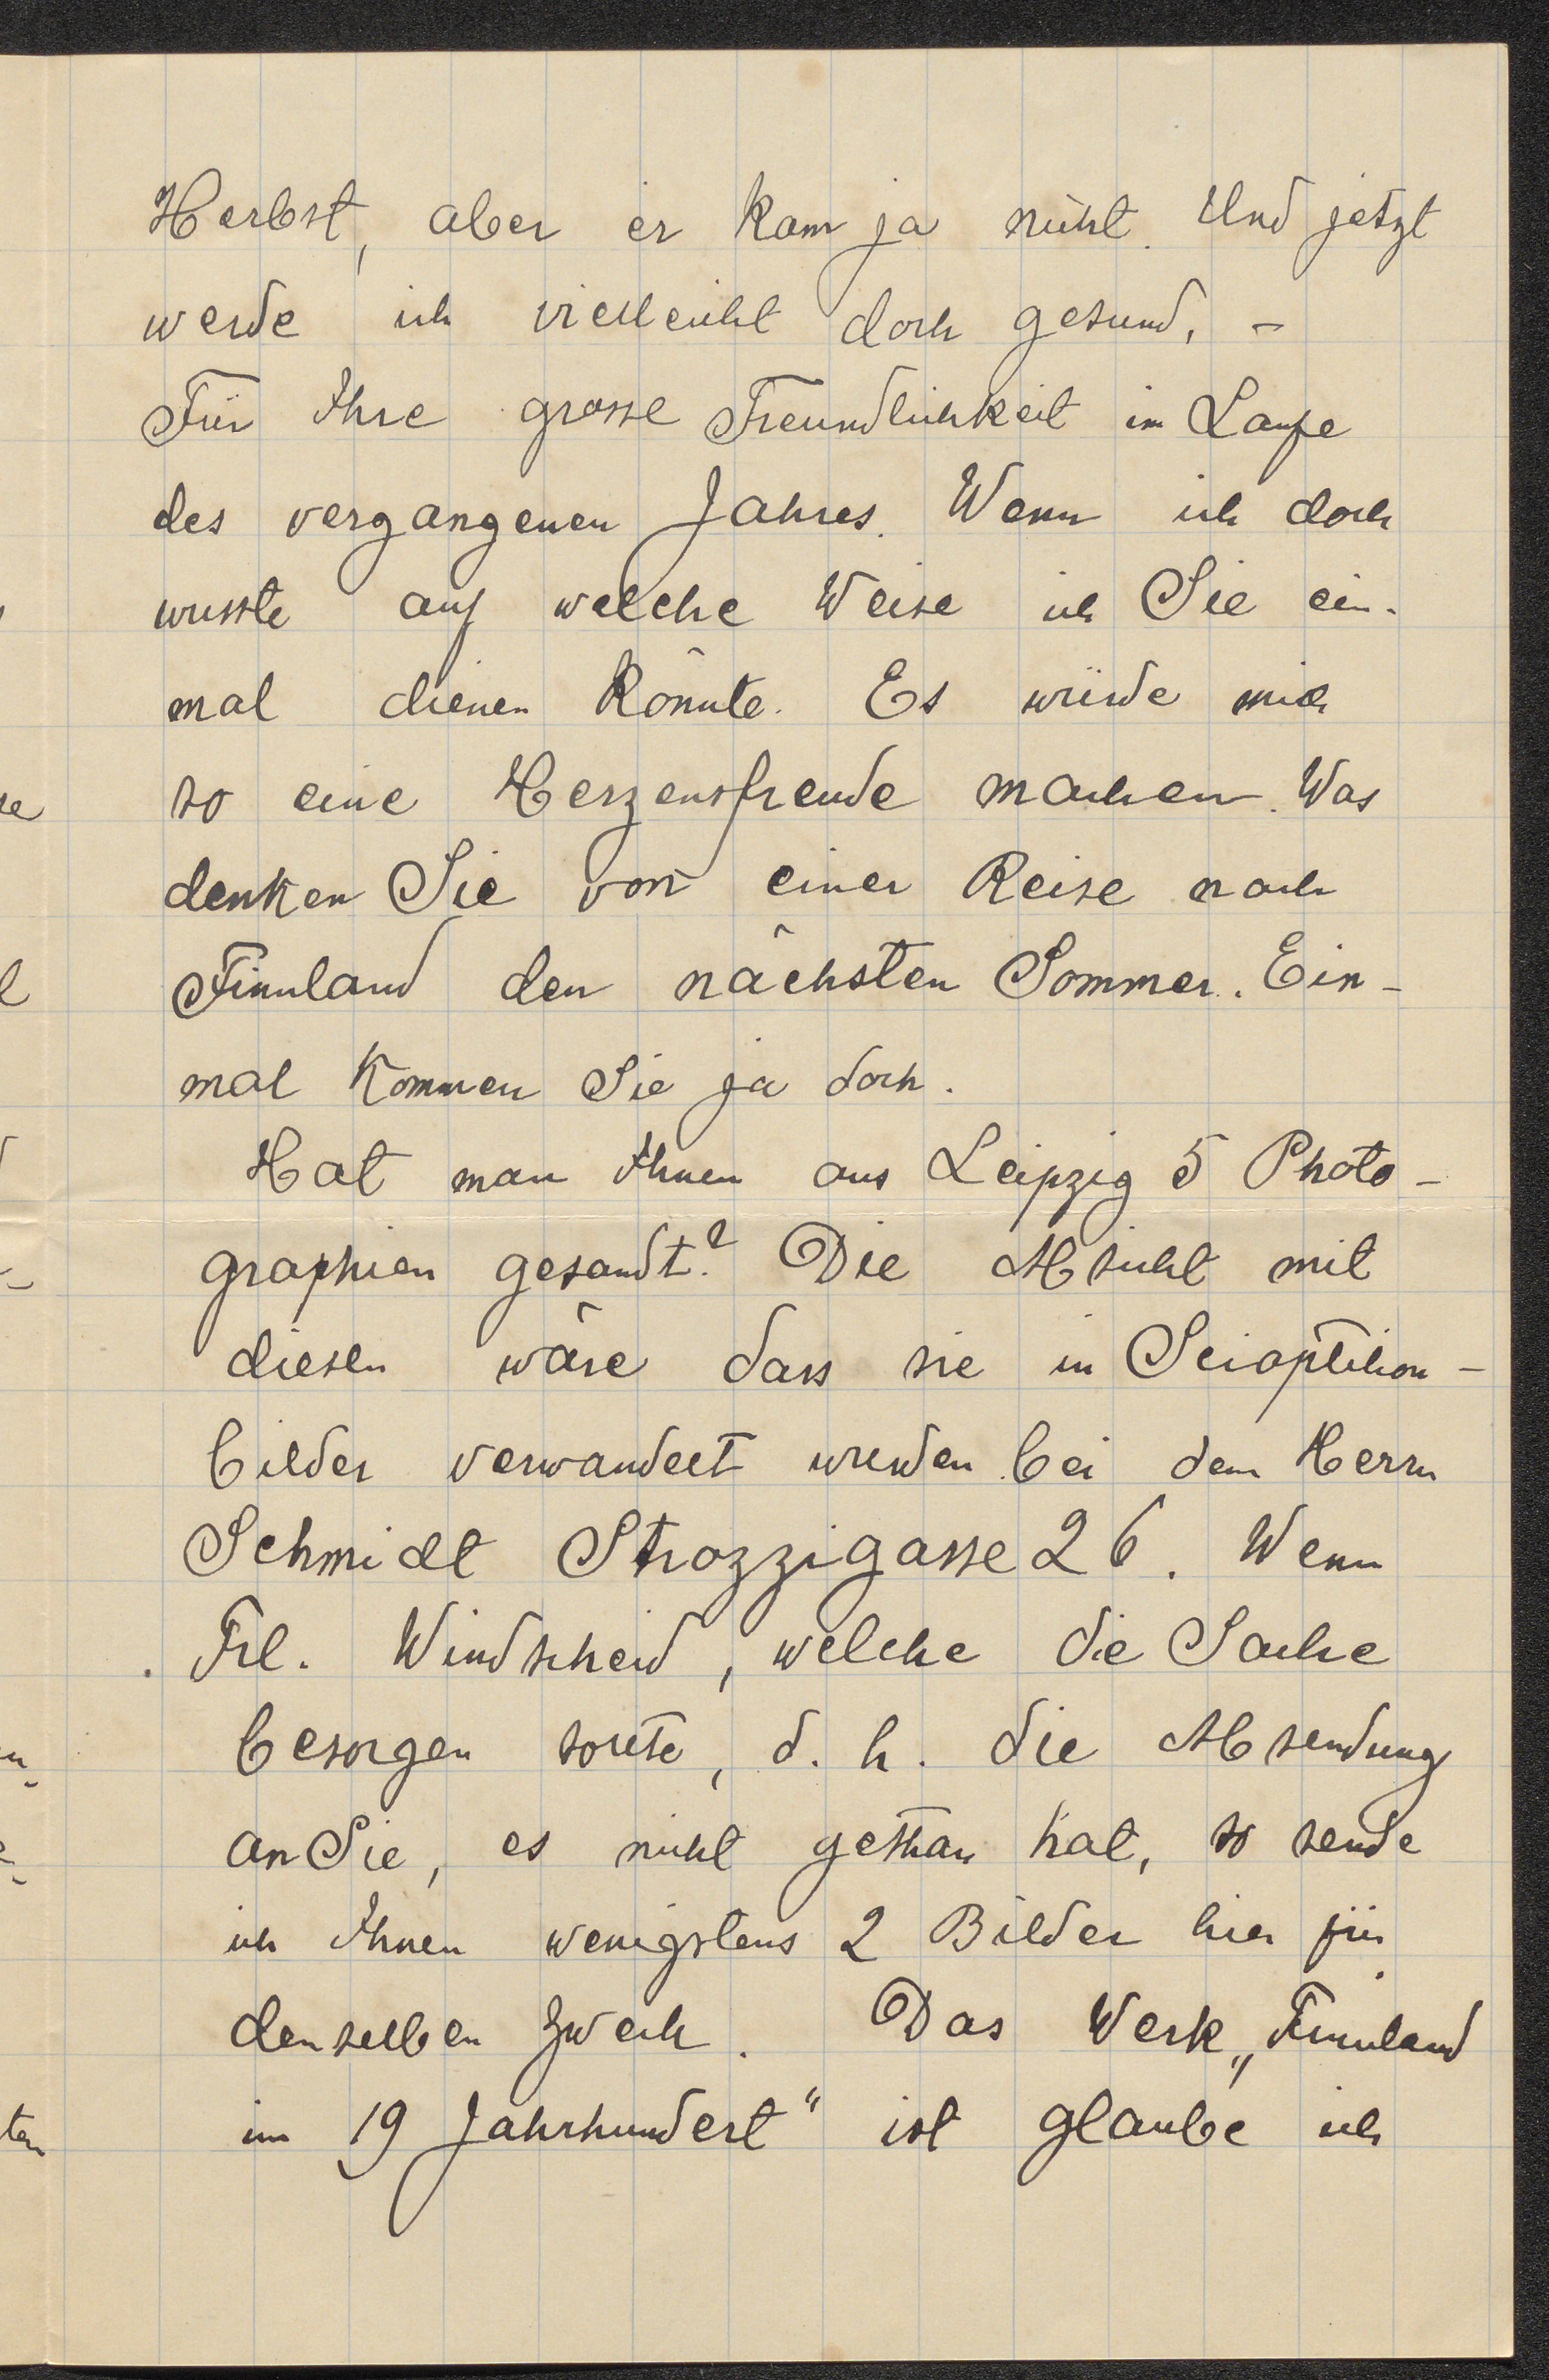 Herbst, aber er kam ja nicht. Und jetzt
werde ich vielleicht doch gesund. –
Für Ihre grosse Freundlichkeit im Laufe
des vergangenen Jahres. Wenn ich doch
wusste auf welche Weise ich Sie ein-
mal dienen könnte. Es würde mich
so eine Herzensfreude machen. Was
denken Sie von einer Reise nach
Finnland den nächsten Sommer. Ein-
mal kommen Sie ja doch.
Hat man Ihnen aus Leipzig 5 Photo-
graphien gesandt? Die Absicht mit
diesen wäre dass sie in Scioptikon-
bilder verwandelt wurden bei dem Herrn
Schmidt Strozzigasse 26. Wenn
Frl. Windscheid, welche die Sache
besorgen sollte, d. h. die Absendung
an Sie, es nicht gethan hat, so sende
ich Ihnen wenigstens 2 Bilder hier für
denselben Zweck. Das Werk „Finnland
im 19 Jahrhundert“ ist glaube ich